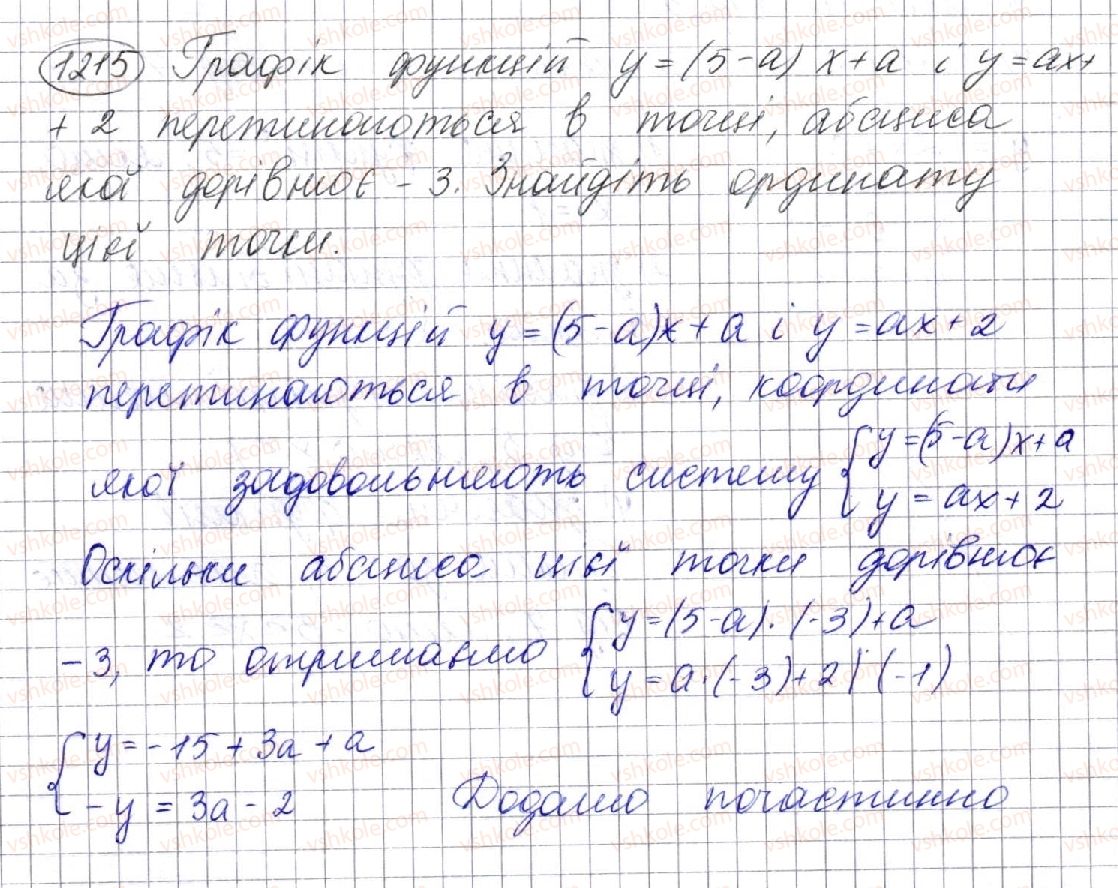 1215 Графік функцій y=(5-a)x+a і y=ax+
+2 перетинаються в точці, абсциса
якої дорівнює -3. Знайдіть ординату
цієї точки.
Графік функцій y=(5-a)x+a і y=ax+2
перетинаються в точці, координати
якої задовольняють систему { y=(5-a)x+a
y=ax+2
Оскільки абсциса цієї точки дорівнює
-3, то отримаємо { y=(5-a)·(-3)+a
y=a·(-3)+2|·(-1)
{ y=-15+3a+a
-y=3a-2 Додамо почастинно